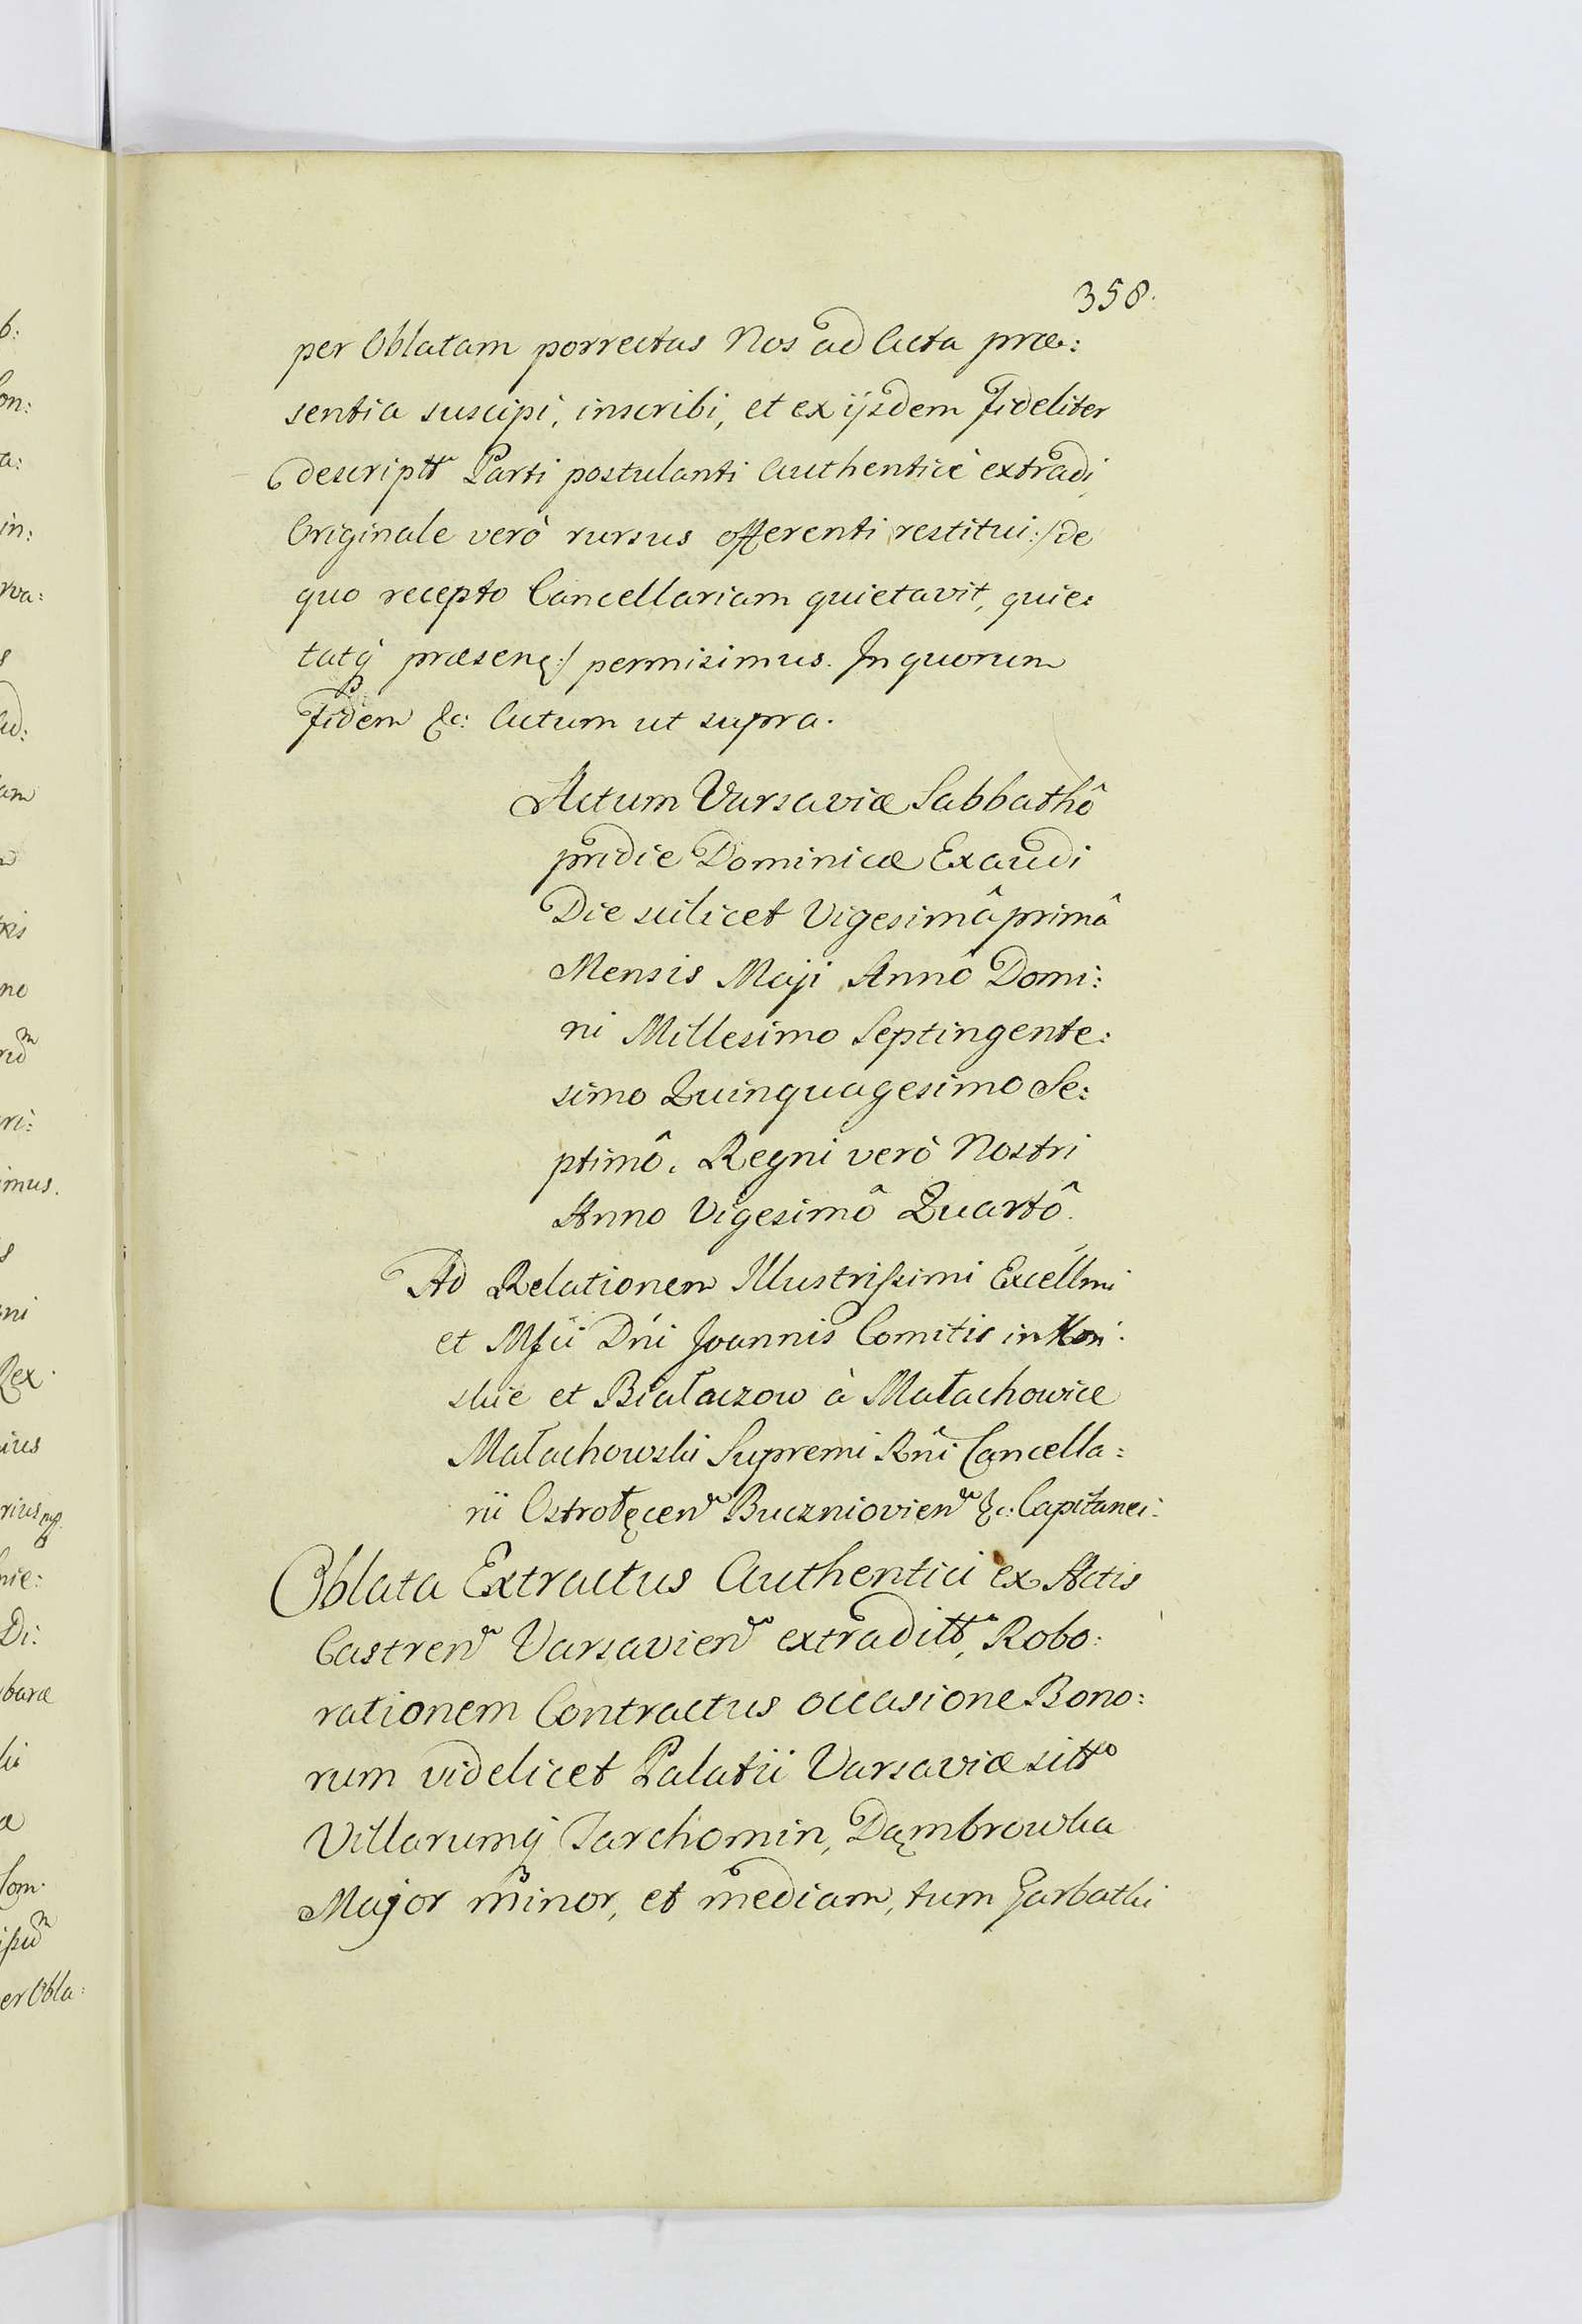 358.
per Oblatam porrectas Nos ad Acta præ:
sentia suscipi, inscribi, et ex ijsdem fideliter
descriptt Parti postulanti Authenticè extradi,
Originale verò rursus offerenti restitui:/de
quo recepto Cancellariam quietavit, quie:
tatq præsen:/ permisimus. In quorum
Fidem &c: Actum ut supra.
Actum Varsaviæ Sabbathô
pridie Dominicæ Exaudi
Die scilicet Vigesimâ primâ
Mensis Maji Annô Domi:
ni Millesimo Septingente:
simo Quinquagesimo Se:
ptimô. Regni verò Nostri
Anno Vigesimô Quartô.
Ad Relationem Illustrissimi Excellmi
et Mfci Dni Joannis Comitis in Kon:
skie et Białaczow à Małachowice
Małachowski Supremi Rni Cancella:
rii Ostrołęcen Buczniovien &c: Capitanei:
Oblata Extractus Authentici ex Actis
Castren Varsavien extraditt, Robo:
rationem Contractus occasione Bono:
rum videlicet Palatii Varsaviæ sitto
Villarumq Tarchomin, Dąmbrowka
Major minor, et mediam, tum Garbatki
b:
on:
a:
in:
rva:
s
ud:
am
ris
ne
ri:
imus.
s
ni
Rex.
ius
rius
nie:
Di:
baræ
ki
a
Com.
er Obla: